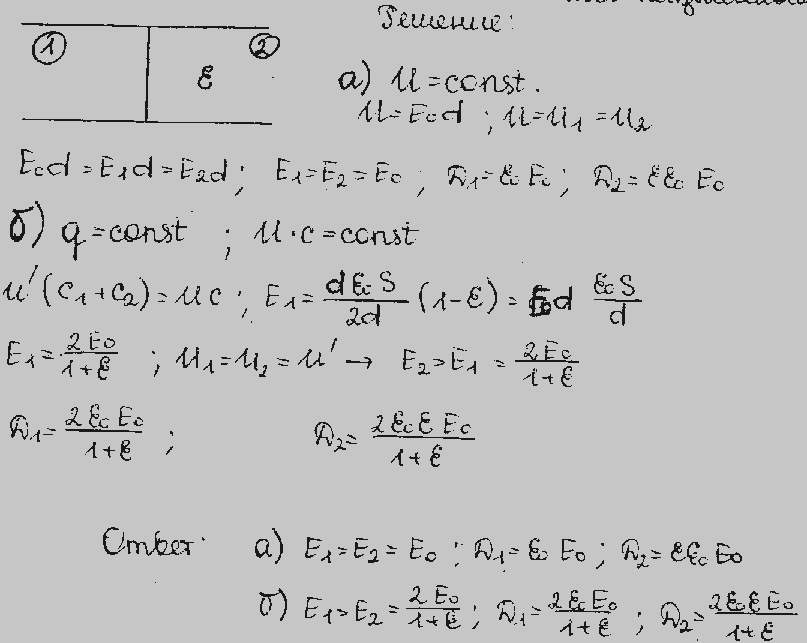 Решение:
① ② ε
а) U = const.
U = E₀d ; U = U₁ = U₂
E₀d = E₁d = E₂d ; E₁ = E₂ = E₀ ; D₁ = ε₀ E₀ ; D₂ = εε₀ E₀
б) q = const ; U·c = const
U'(C₁ + C₂) = UC ; E₁ = dε₀S/2d (1-ε) = E₀d ε₀S/d
E₁ = 2E₀/1+ε ; U₁ = U₂ = U' → E₂ = E₁ = 2E₀/1+ε
D₁ = 2ε₀E₀/1+ε ; D₂ = 2ε₀ε E₀/1+ε
Ответ: а) E₁ = E₂ = E₀ ; D₁ = ε₀ E₀ ; D₂ = εε₀ E₀
б) E₁ = E₂ = 2E₀/1+ε ; D₁ = 2ε₀E₀/1+ε ; D₂ = 2ε₀ε E₀/1+ε